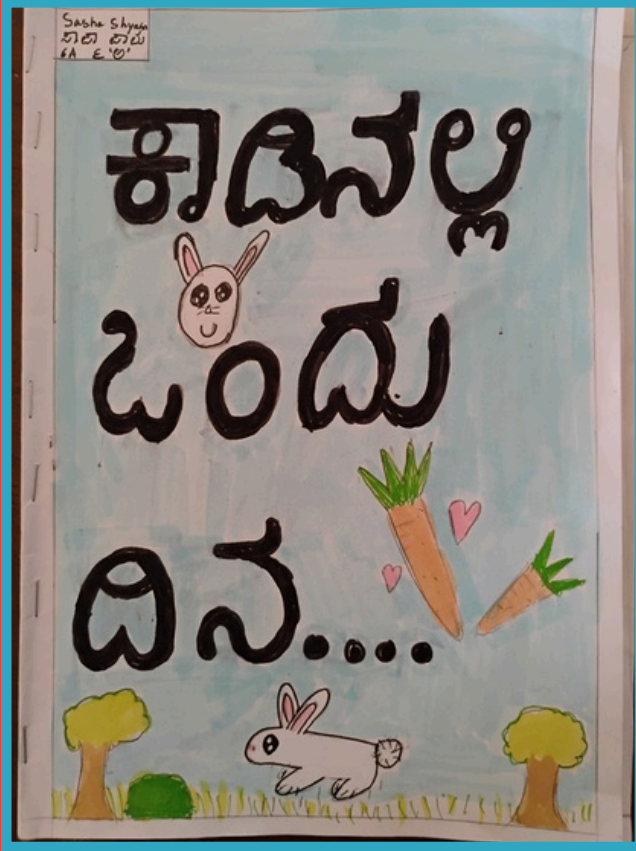 Sasha Shyam
6A
ಕಾಡಿನಲ್ಲಿ
ಒಂದು
ದಿನ....